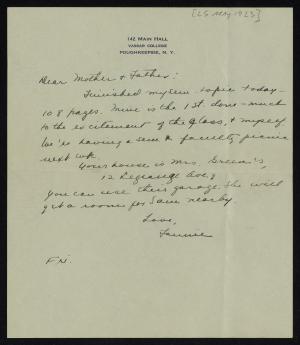 [25 May 1923]
142 MAIN HALL
VASSAR COLLEGE
POUGHKEEPSIE, N. Y.
Dear Mother & Father:
Finished my sem topic today -
108 pages. Mine is the 1st done - much
to the excitement of the class, & myself
We're having a sem & faculty picnic
next wk.
Your house is Mrs. Green's,
12 Lagrange Ave,
You can use their garage. She will
get a room for Sam nearby.
Love,
Fannie
Fri.